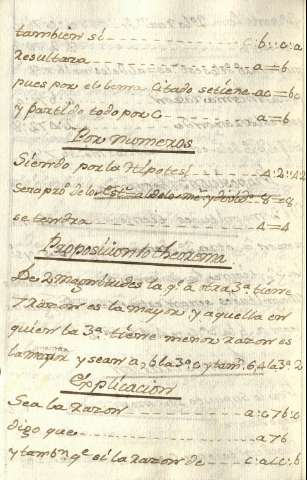 tambien si - - - - c:b::c:a
Resultara - - - - a=b
pues por el lema Citado setiene ac=bc
y partido todo por c - - - - a=b
Por numeros
Siendo por la Hipotesi - - - - 4:2::4:2
Sera pro. de los est. de los me. y 8=8
se tendra - - - - 4=4
Proposicion 10 theorema
De 2 magnitudes la q.e a otra 3ª tiene
7 razon es la mayor y aquella en
quien la 3ª tiene menor razon es
la mayor y sean a, b la 3ª c y tam. 6, 4 la 3ª 2
Explicacion
Sea la razon - - - - a:c 7 b:c
digo que - - - - a 7 b
y tamb.n q.e si la razon de - - - - c:a L c:b